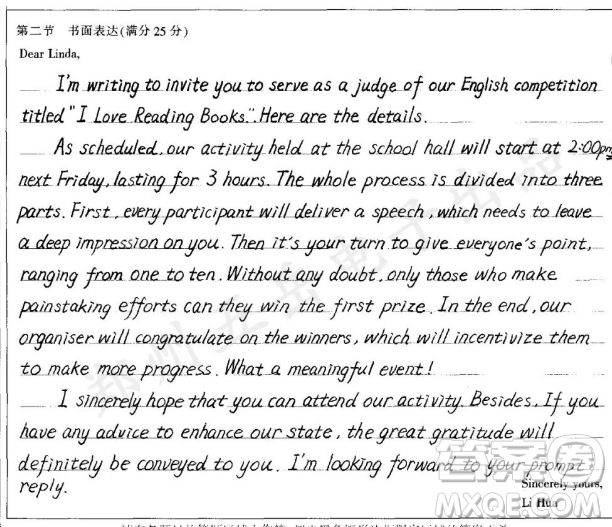 第二节 书面表达(满分25分)
Dear Linda,
I'm writing to invite you to serve as a judge of our English competition
titled "I Love Reading Books". Here are the details.
As scheduled, our activity held at the school hall will start at 2:00pm
next Friday, lasting for 3 hours. The whole process is divided into three
parts. First, every participant will deliver a speech, which needs to leave
a deep impression on you. Then it's your turn to give everyone's point,
ranging from one to ten. Without any doubt, only those who make
painstaking efforts can they win the first prize. In the end, our
organiser will congratulate on the winners, which will incentivize them
to make more progress. What a meaningful event!
I sincerely hope that you can attend our activity. Besides, If you
have any advice to enhance our state, the great gratitude will
definitely be conveyed to you. I'm looking forward to your prompt
reply.
Sincerely yours,
Li Hua